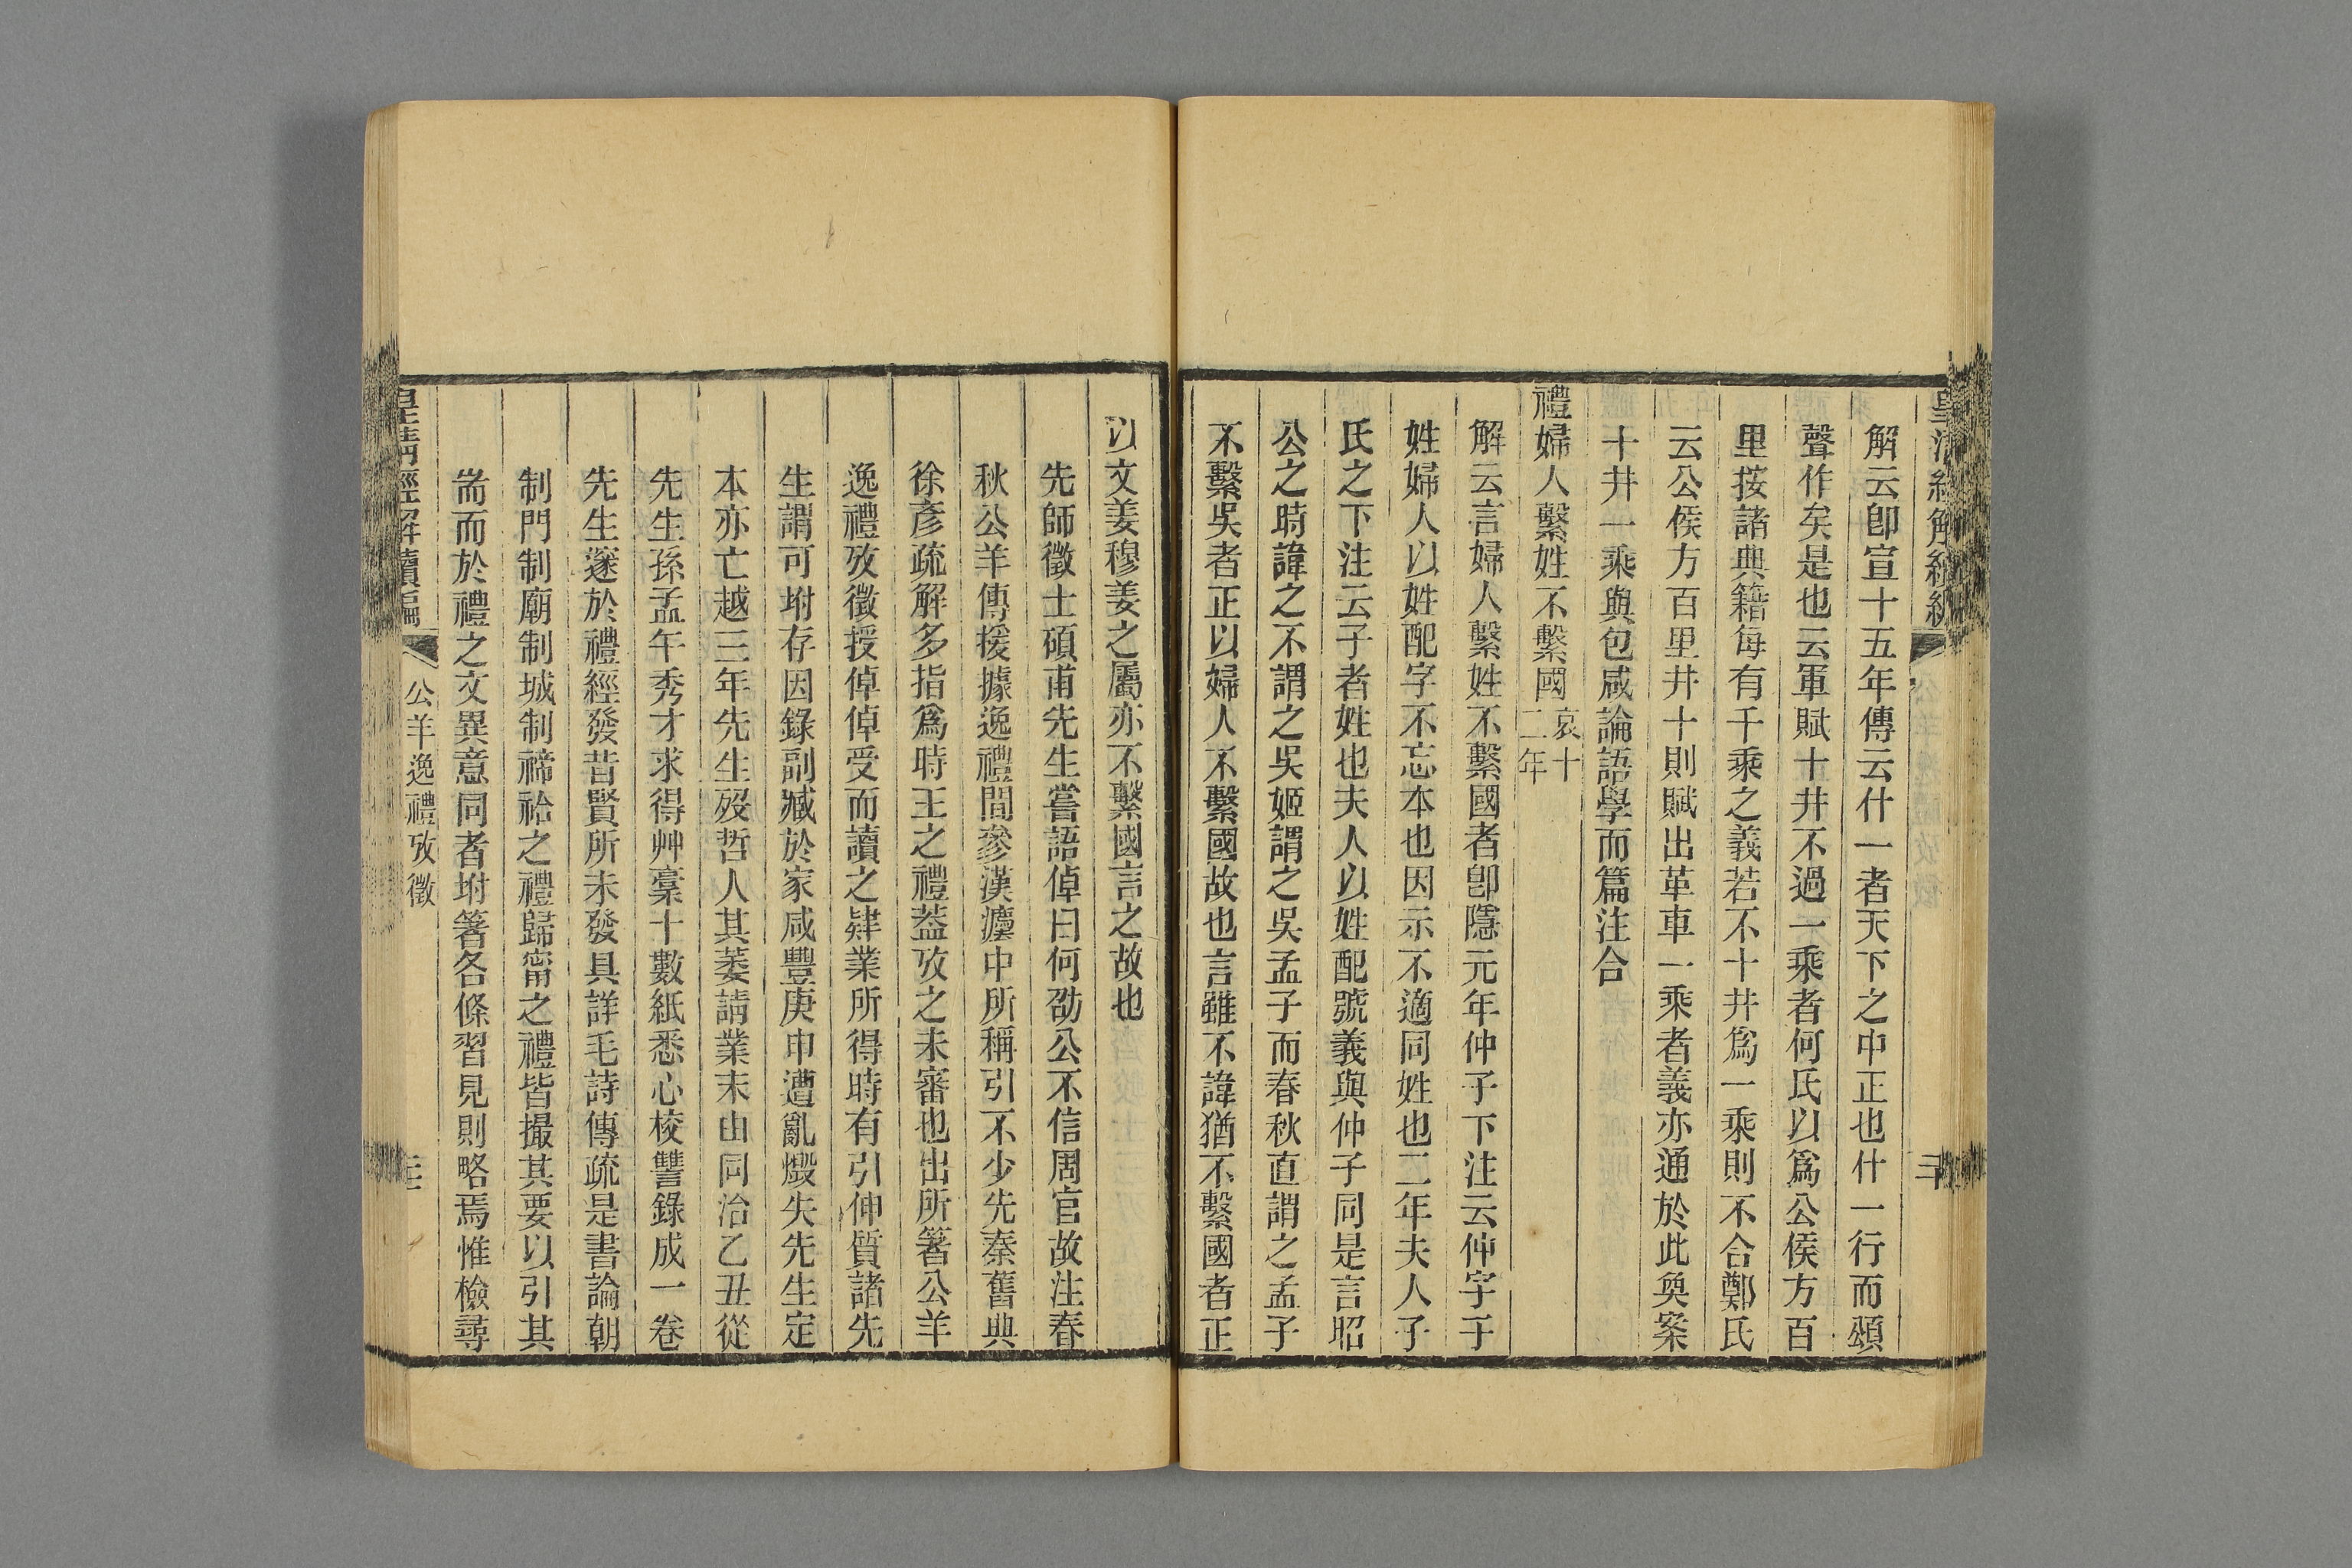 解云卽宣十五年傳云什一者天下之中正也什一行而頌
聲作矣是也云軍賦十井不過一乘者何氏以爲公侯方百
里按諸典籍每有千乘之義若不十井爲一乘則不合鄭氏
云公侯方百里井十則賦出革車一乘者義亦通於此奐案
十井一乘與包咸論語學而篇注合
禮婦人繫姓不繫國哀十二年
解云言婦人繫姓不繫國者卽隱元年仲子下注云仲字子
姓婦人以姓配字不忘本也因示不適同姓也二年夫人子
氏之下注云子者姓也夫人以姓配號義與仲子同是言昭
公之時諱之不謂之吳姬謂之吳孟子而春秋直謂之孟子
不繫吳者正以婦人不繫國故也言雖不諱猶不繫國者正
以文姜穆姜之屬亦不繫國言之故也
先師徵士碩甫先生嘗語倬曰何劭公不信周官故注春
秋公羊傳援據逸禮間參漢灋中所稱引不少先秦舊典
徐彥疏解多指爲時王之禮葢攷之未審也出所箸公羊
逸禮攷徵授倬倬受而讀之肄業所得時有引伸質諸先
生謂可坿存因錄副臧於家咸豐庚申遭亂燬失先生定
本亦亡越三年先生歿哲人其萎請業末由同治乙丑從
先生孫孟午秀才求得艸稾十數紙悉心校讐錄成一卷
先生邃於禮經發昔賢所未發具詳毛詩傳疏是書論朝
制門制廟制城制禘祫之禮歸甯之禮皆撮其要以引其
耑而於禮之文異意同者坿箸各條習見則略焉惟檢尋
皇清經解續編
公羊逸禮攷徵